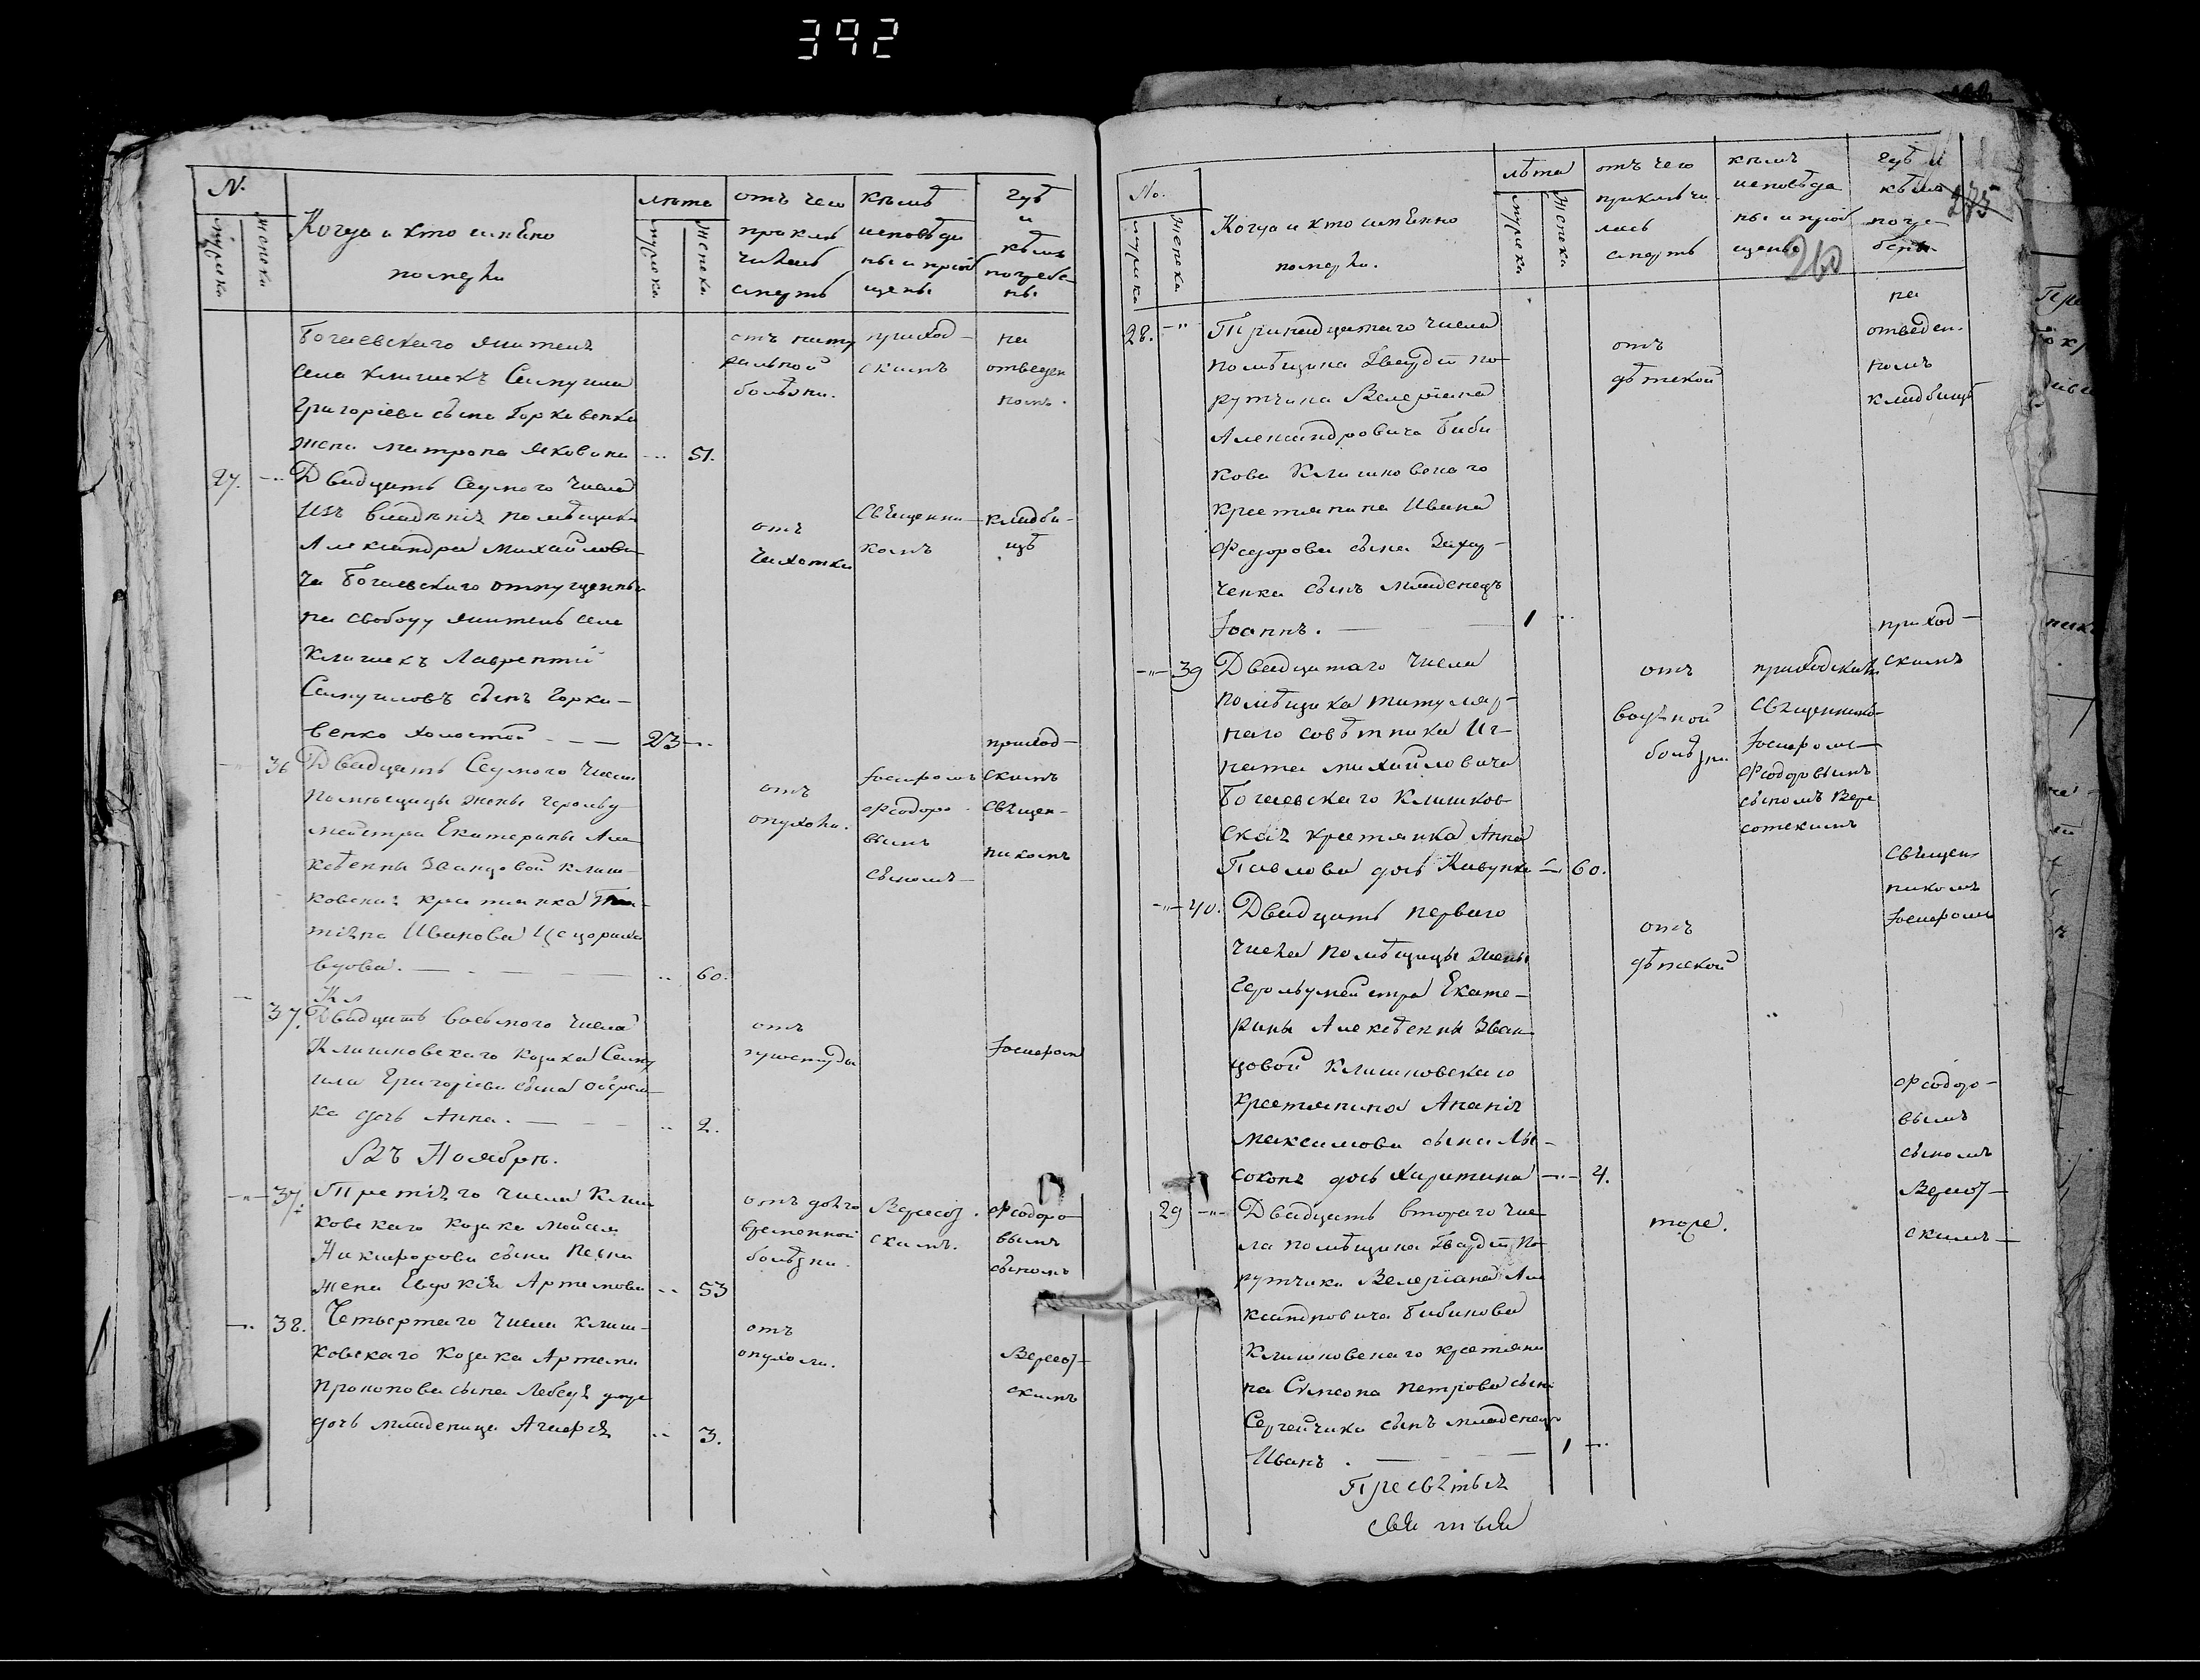 392
N.
мужеска
женска
Когда и кто имѣнно
померли
лѣта
мужеска
женска
отъ чего
приклю
чилась
смерть
кѣмъ
исповѣда
ны и пріоб
щены
гдѣ
и
кѣмъ
погребе
ны
Богаевскаго жителя
села Клишекъ Самуила
Григоріева сына Горкавенка
жена Матрона Яковлева 51.
отъ нату
ральной
болѣзни.
приход-
скимъ
на
отведен
номъ.
27. Двадцать Седмого числа
изъ владѣнія помѣщика
Александра Михайлови-
ча Богаевскаго отпущенный
на свободу житель села
Клишекъ Лаврентій
Самуиловъ сынъ Горка-
венко холостой 23
отъ
чахотки
Священни-
комъ
кладби-
щѣ
36 Двадцать Седмого числа
Помѣщицы жены герольд-
мейстра Екатерины Але
ксѣевны Званцовой клиш-
ковская крестьянка
Иванова
вдова. 60.
отъ
опухоли.
Іосифомъ
Феодоро-
вымъ
сыномъ
приход-
скимъ
священ-
никомъ
Кл
37. Двадцать восьмого числа
Клишковскаго козака Саму
ила Григоріева сына
ка дочь Анна. 2.
отъ
простуды
Іосифом
Въ Ноябрѣ.
37. Третіяго числа Клиш
ковскаго козака Мойсея
Никифорова сына
жена Евдокія Артемова 53
отъ долго
временной
болѣзни.
Вересоц.
скимъ.
Феодоро-
вымъ
сыномъ
38. Четвертаго числа Клиш-
ковскаго козака Артема
Прокопова сына Лебедя
дочь младеница Агафія 3.
отъ
опухоли.
Вересоц-
скимъ
No.
мужеска
женска
Когда и кто имѣнно
померли.
лѣта
мужеска
женска
отъ чего
приключи
лась
смерть
кѣмъ
исповѣда
ны и пріоб
щены
гдѣ и
кѣмъ
погре-
бены
275
260
28. Тринадцатаго числа
помѣщика Гвардіи по-
рутчика Валеріана
Александровича Биби
кова Клишковскаго
крестьянина Ивана
Федорова сына Заху-
ченка сынъ младенецъ
Іоаннъ. 1
отъ
дѣтской
на
отведен-
номъ
кладбищѣ
39 Двадцатаго числа
помѣщика титуляр-
наго совѣтника Иг-
ната Михайловича
Богаевскаго Клишков-
ская крестьянка Анна
Павлова дочь 60.
отъ
водяной
болѣзни
приходскимъ
Священнико-
Іосифомъ
Феодоровымъ
сыномъ Вере
соцскимъ
приход-
скимъ
40. Двадцать перваго
числа помѣщицы жены
Герольдмейстра Екате-
рины Алексѣевны Зван
цовой Клишковскаго
крестьянина Ананія
Максимова сына Лы-
соконя дочь Харитина 4.
отъ
дѣтской
священ
никомъ
Іосифомъ
Феодоро-
вымъ
сыномъ
29 Двадцать втораго чис
ла помѣщика Гвардіи По-
рутчика Валеріана Але
ксандровича Бибикова
Клишковскаго крестьяни
на Симеона Петрова сына
Сергейчика сынъ младенецъ
Иванъ. 1
тоже.
Вересоц-
скимъ
Пресвятыя